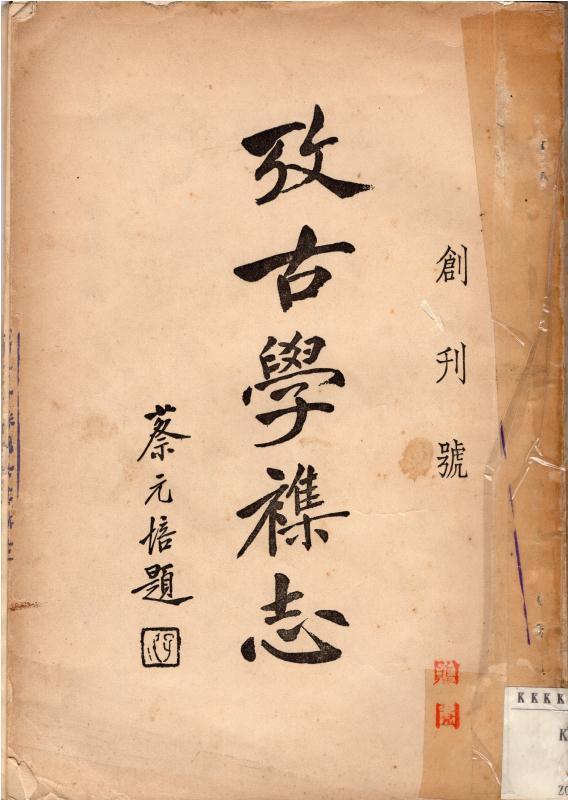 創刊號
攷古學襍志
蔡元培題
KKKK
K